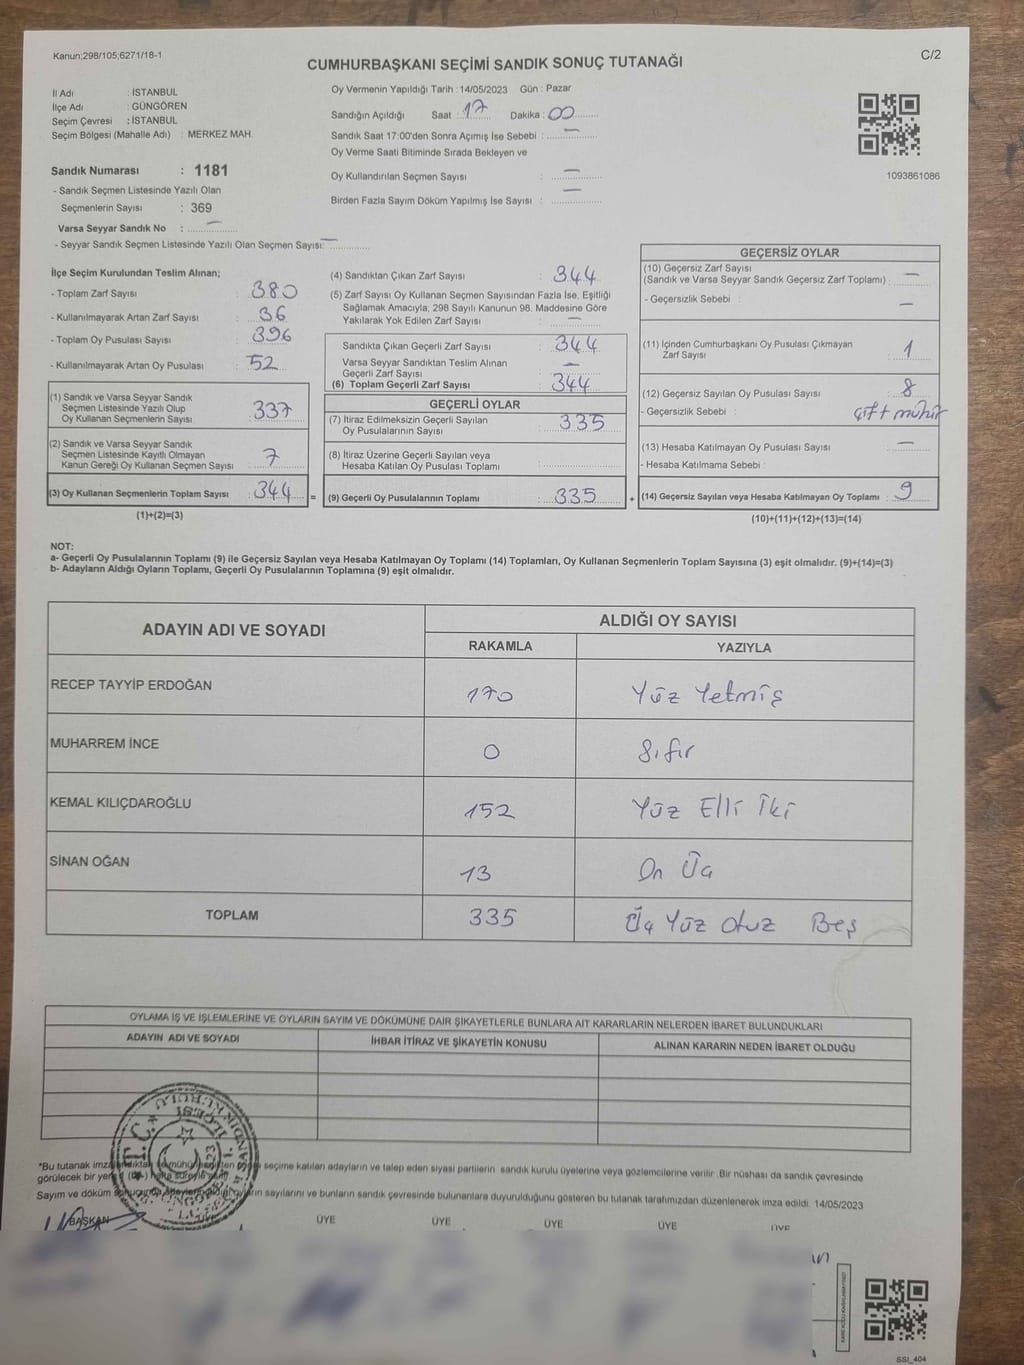 Kanun:298/105;6271/18-1
C/2
CUMHURBAŞKANI SEÇİMİ SANDIK SONUÇ TUTANAĞI
İl Adı : İSTANBUL
İlçe Adı : GÜNGÖREN
Seçim Çevresi : İSTANBUL
Seçim Bölgesi (Mahalle Adı) : MERKEZ MAH.
Sandık Numarası : 1181
- Sandık Seçmen Listesinde Yazılı Olan
Seçmenlerin Sayısı : 369
Varsa Seyyar Sandık No : —
- Seyyar Sandık Seçmen Listesinde Yazılı Olan Seçmen Sayısı: —
Oy Vermenin Yapıldığı Tarih : 14/05/2023 Gün : Pazar
Sandığın Açıldığı Saat : 17 Dakika : 00
Sandık Saat 17:00'den Sonra Açımış İse Sebebi : —
Oy Verme Saati Bitiminde Sırada Bekleyen ve
Oy Kullandırılan Seçmen Sayısı : —
Birden Fazla Sayım Döküm Yapılmış İse Sayısı : —
1093861086
İlçe Seçim Kurulundan Teslim Alınan;
- Toplam Zarf Sayısı : 380
- Kullanılmayarak Artan Zarf Sayısı : 36
- Toplam Oy Pusulası Sayısı : 396
- Kullanılmayarak Artan Oy Pusulası : 52
(1) Sandık ve Varsa Seyyar Sandık
Seçmen Listesinde Yazılı Olup
Oy Kullanan Seçmenlerin Sayısı : 337
(2) Sandık ve Varsa Seyyar Sandık
Seçmen Listesinde Kayıtlı Olmayan
Kanun Gereği Oy Kullanan Seçmen Sayısı : 7
(3) Oy Kullanan Seçmenlerin Toplam Sayısı : 344 =
(1)+(2)=(3)
(4) Sandıktan Çıkan Zarf Sayısı : 344
(5) Zarf Sayısı Oy Kullanan Seçmen Sayısından Fazla İse, Eşitliği
Sağlamak Amacıyla, 298 Sayılı Kanunun 98. Maddesine Göre
Yakılarak Yok Edilen Zarf Sayısı : —
Sandıkta Çıkan Geçerli Zarf Sayısı : 344
Varsa Seyyar Sandıktan Teslim Alınan
Geçerli Zarf Sayısı : —
(6) Toplam Geçerli Zarf Sayısı : 344
GEÇERLİ OYLAR
(7) İtiraz Edilmeksizin Geçerli Sayılan
Oy Pusulalarının Sayısı : 335
(8) İtiraz Üzerine Geçerli Sayılan veya
Hesaba Katılan Oy Pusulası Toplamı :
(9) Geçerli Oy Pusulalarının Toplamı : 335 +
GEÇERSİZ OYLAR
(10) Geçersiz Zarf Sayısı
(Sandık ve Varsa Seyyar Sandık Geçersiz Zarf Toplamı) : —
- Geçersizlik Sebebi : —
(11) İçinden Cumhurbaşkanı Oy Pusulası Çıkmayan
Zarf Sayısı : 1
(12) Geçersiz Sayılan Oy Pusulası Sayısı : 8
- Geçersizlik Sebebi : çift mühür
(13) Hesaba Katılmayan Oy Pusulası Sayısı : —
- Hesaba Katılmama Sebebi :
(14) Geçersiz Sayılan veya Hesaba Katılmayan Oy Toplamı : 9
(10)+(11)+(12)+(13)=(14)
NOT:
a- Geçerli Oy Pusulalarının Toplamı (9) ile Geçersiz Sayılan veya Hesaba Katılmayan Oy Toplamı (14) Toplamları, Oy Kullanan Seçmenlerin Toplam Sayısına (3) eşit olmalıdır. (9)+(14)=(3)
b- Adayların Aldığı Oyların Toplamı, Geçerli Oy Pusulalarının Toplamına (9) eşit olmalıdır.
ADAYIN ADI VE SOYADI
ALDIĞI OY SAYISI
RAKAMLA YAZIYLA
RECEP TAYYİP ERDOĞAN 170 Yüz Yetmiş
MUHARREM İNCE 0 Sıfır
KEMAL KILIÇDAROĞLU 152 Yüz Elli İki
SİNAN OĞAN 13 On Üç
TOPLAM 335 Üç Yüz Otuz Beş
OYLAMA İŞ VE İŞLEMLERİNE VE OYLARIN SAYIM VE DÖKÜMÜNE DAİR ŞİKAYETLERLE BUNLARA AİT KARARLARIN NELERDEN İBARET BULUNDUKLARI
ADAYIN ADI VE SOYADI İHBAR İTİRAZ VE ŞİKAYETİN KONUSU ALINAN KARARIN NEDEN İBARET OLDUĞU
T.C.
*Bu tutanak seçime katılan adayların ve talep eden siyasi partilerin sandık kurulu üyelerine veya gözlemcilerine verilir. Bir nüshası da sandık çevresinde
görülecek bir yere
Sayım ve döküm oyların sayılarını ve bunların sandık çevresinde bulunanlara duyurulduğunu gösteren bu tutanak tarafımızdan düzenlenerek imza edildi. 14/05/2023
BAŞKAN ÜYE ÜYE ÜYE ÜYE ÜYE ÜYE
SSI_404